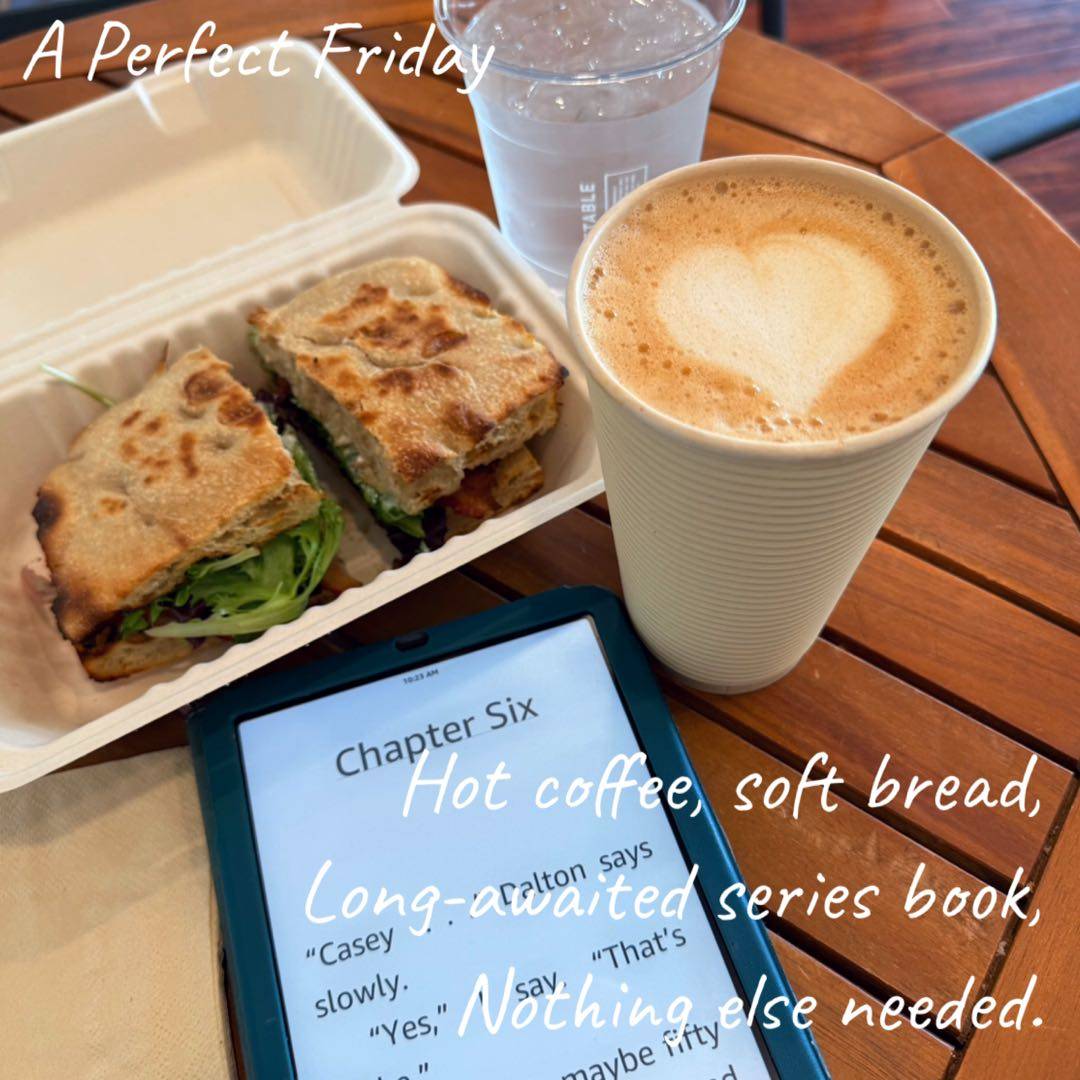 A Perfect Friday
TABLE
10:23 AM
Chapter Six
"Casey . . ." Dalton says
slowly.
"Yes," I say. "That's
maybe fifty
Hot coffee, soft bread,
Long-awaited series book,
Nothing else needed.